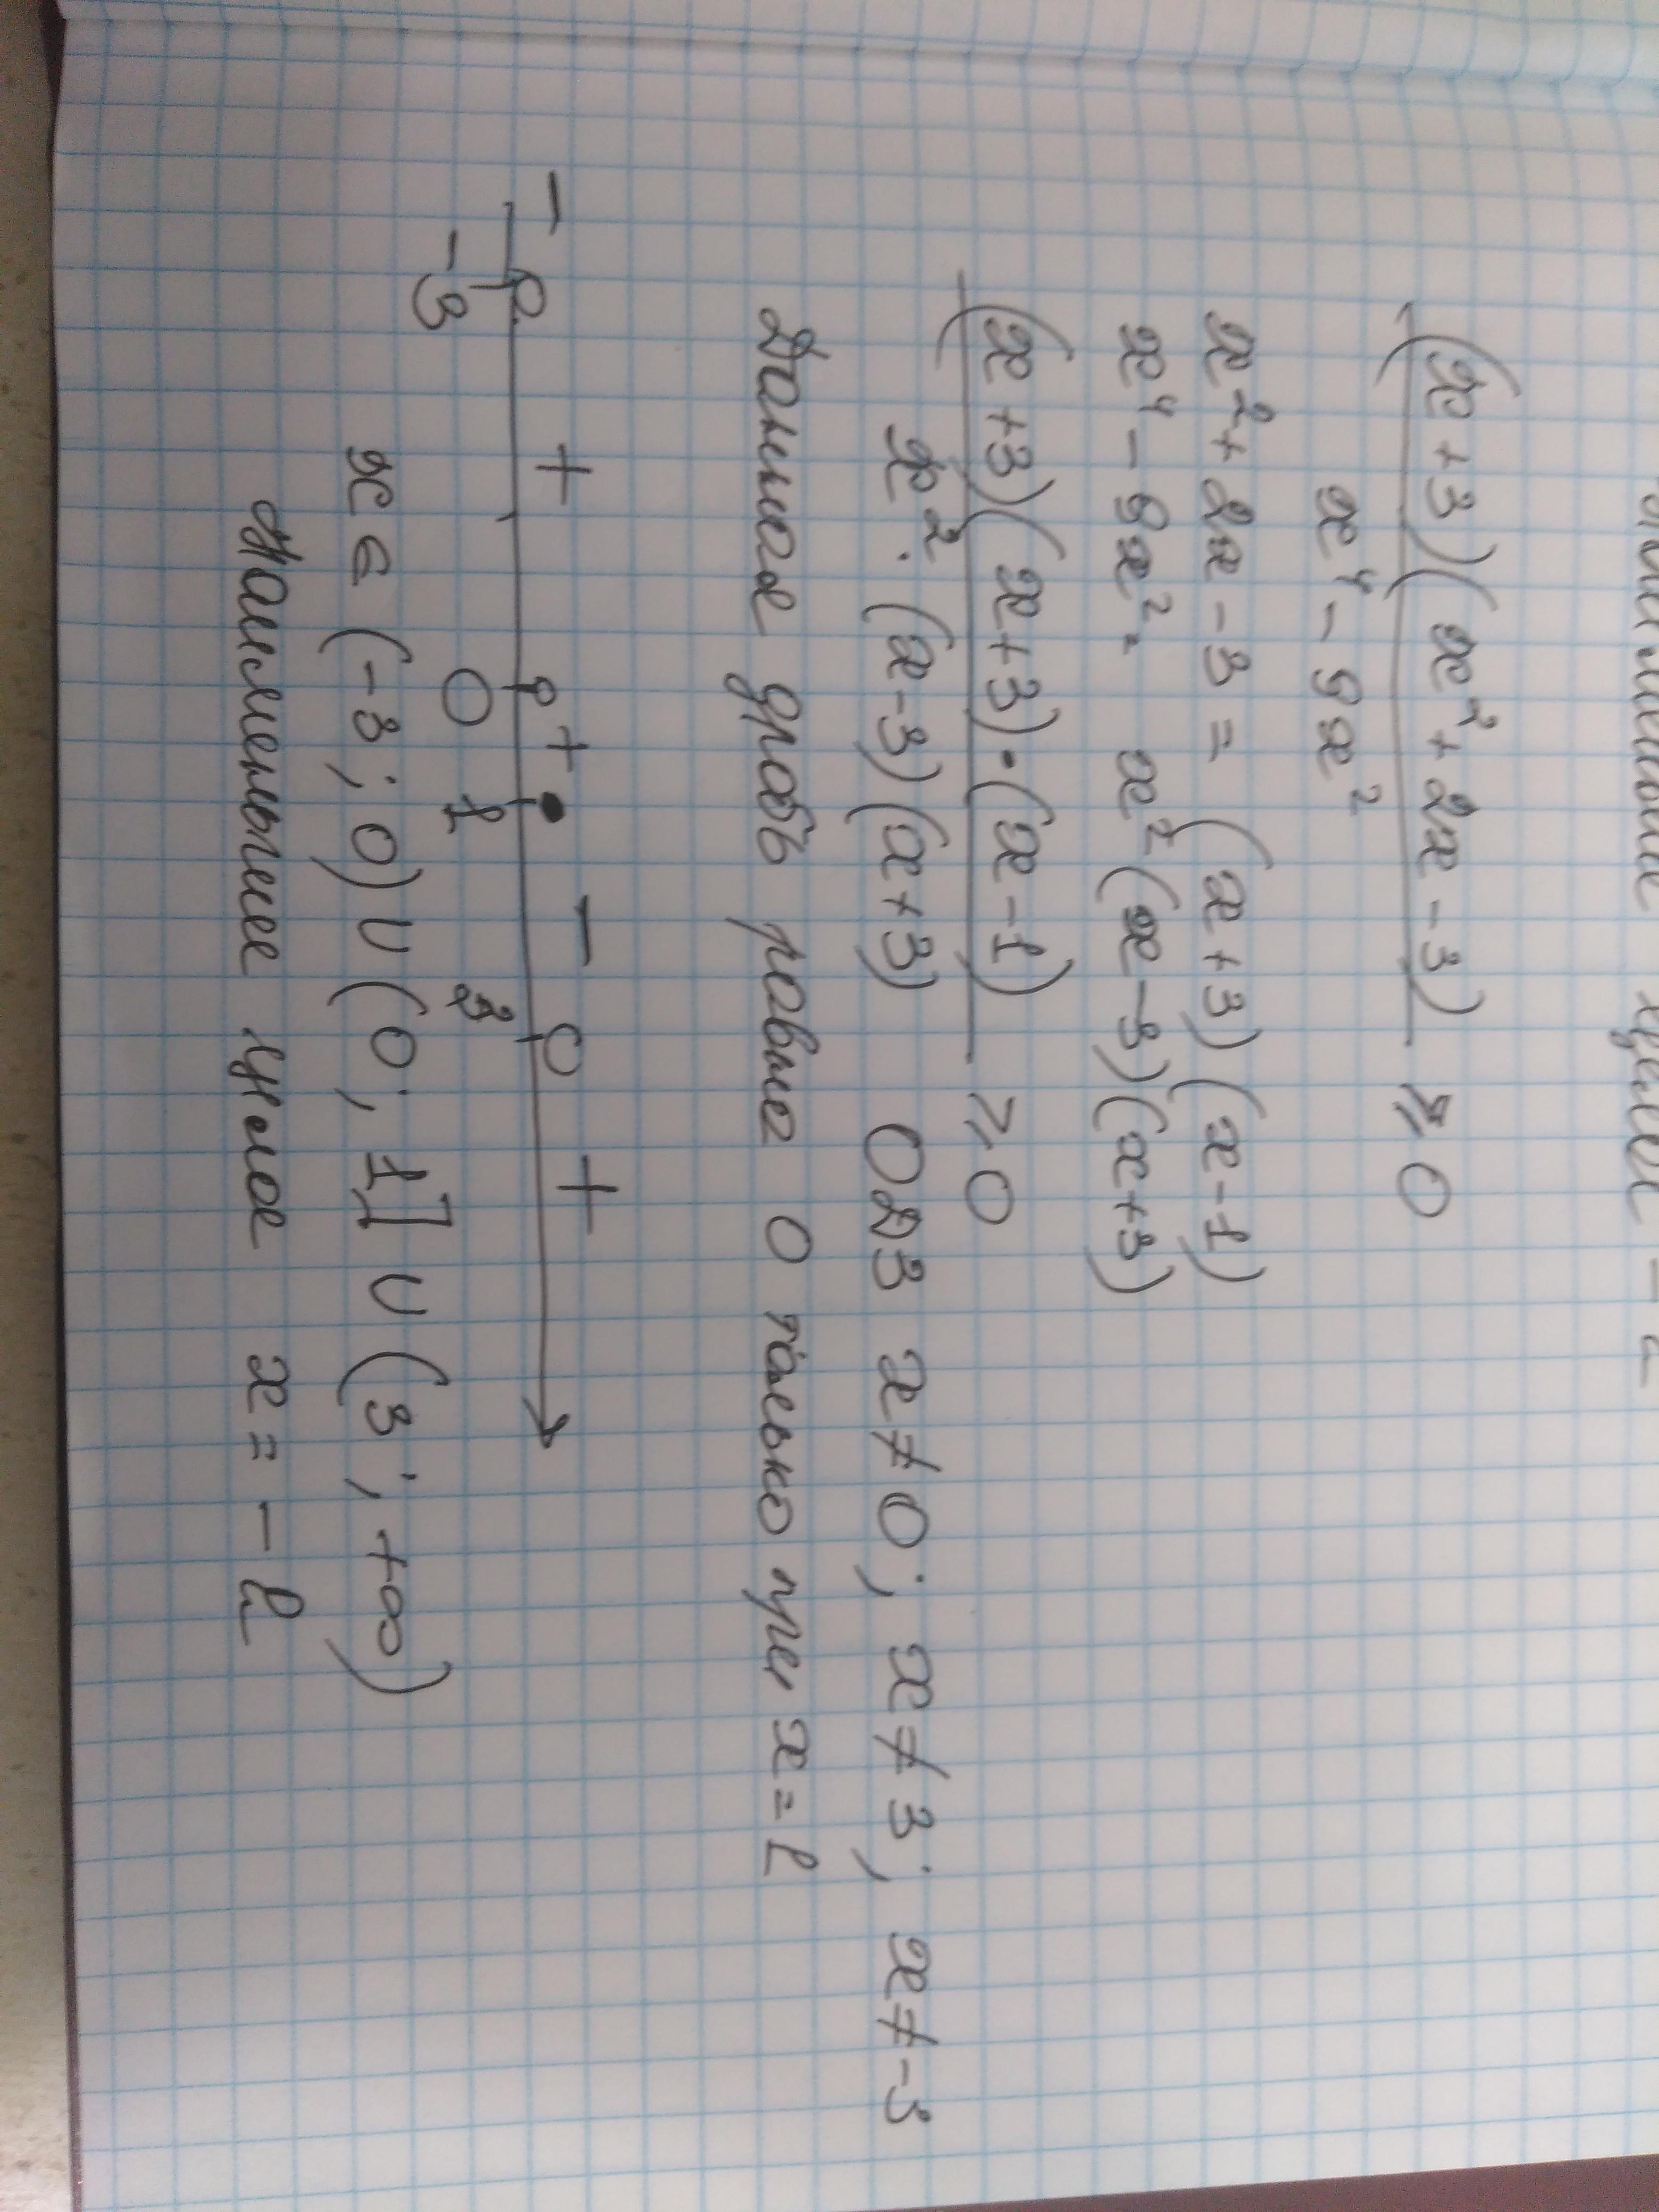 целое
(x+3)(x²+2x-3) / x⁴-9x² ≥ 0
x²+2x-3 = (x+3)(x-1)
x⁴-9x² = x²(x-3)(x+3)
(x+3)(x+3)·(x-1) / x²·(x-3)(x+3) ≥ 0 ОДЗ x≠0; x≠3; x≠-3
Данная дробь равна 0 только при x=1
- + + - +
-3 0 1 3
x∈(-3; 0)∪(0; 1]∪(3; +∞)
Наименьшее целое x = -2